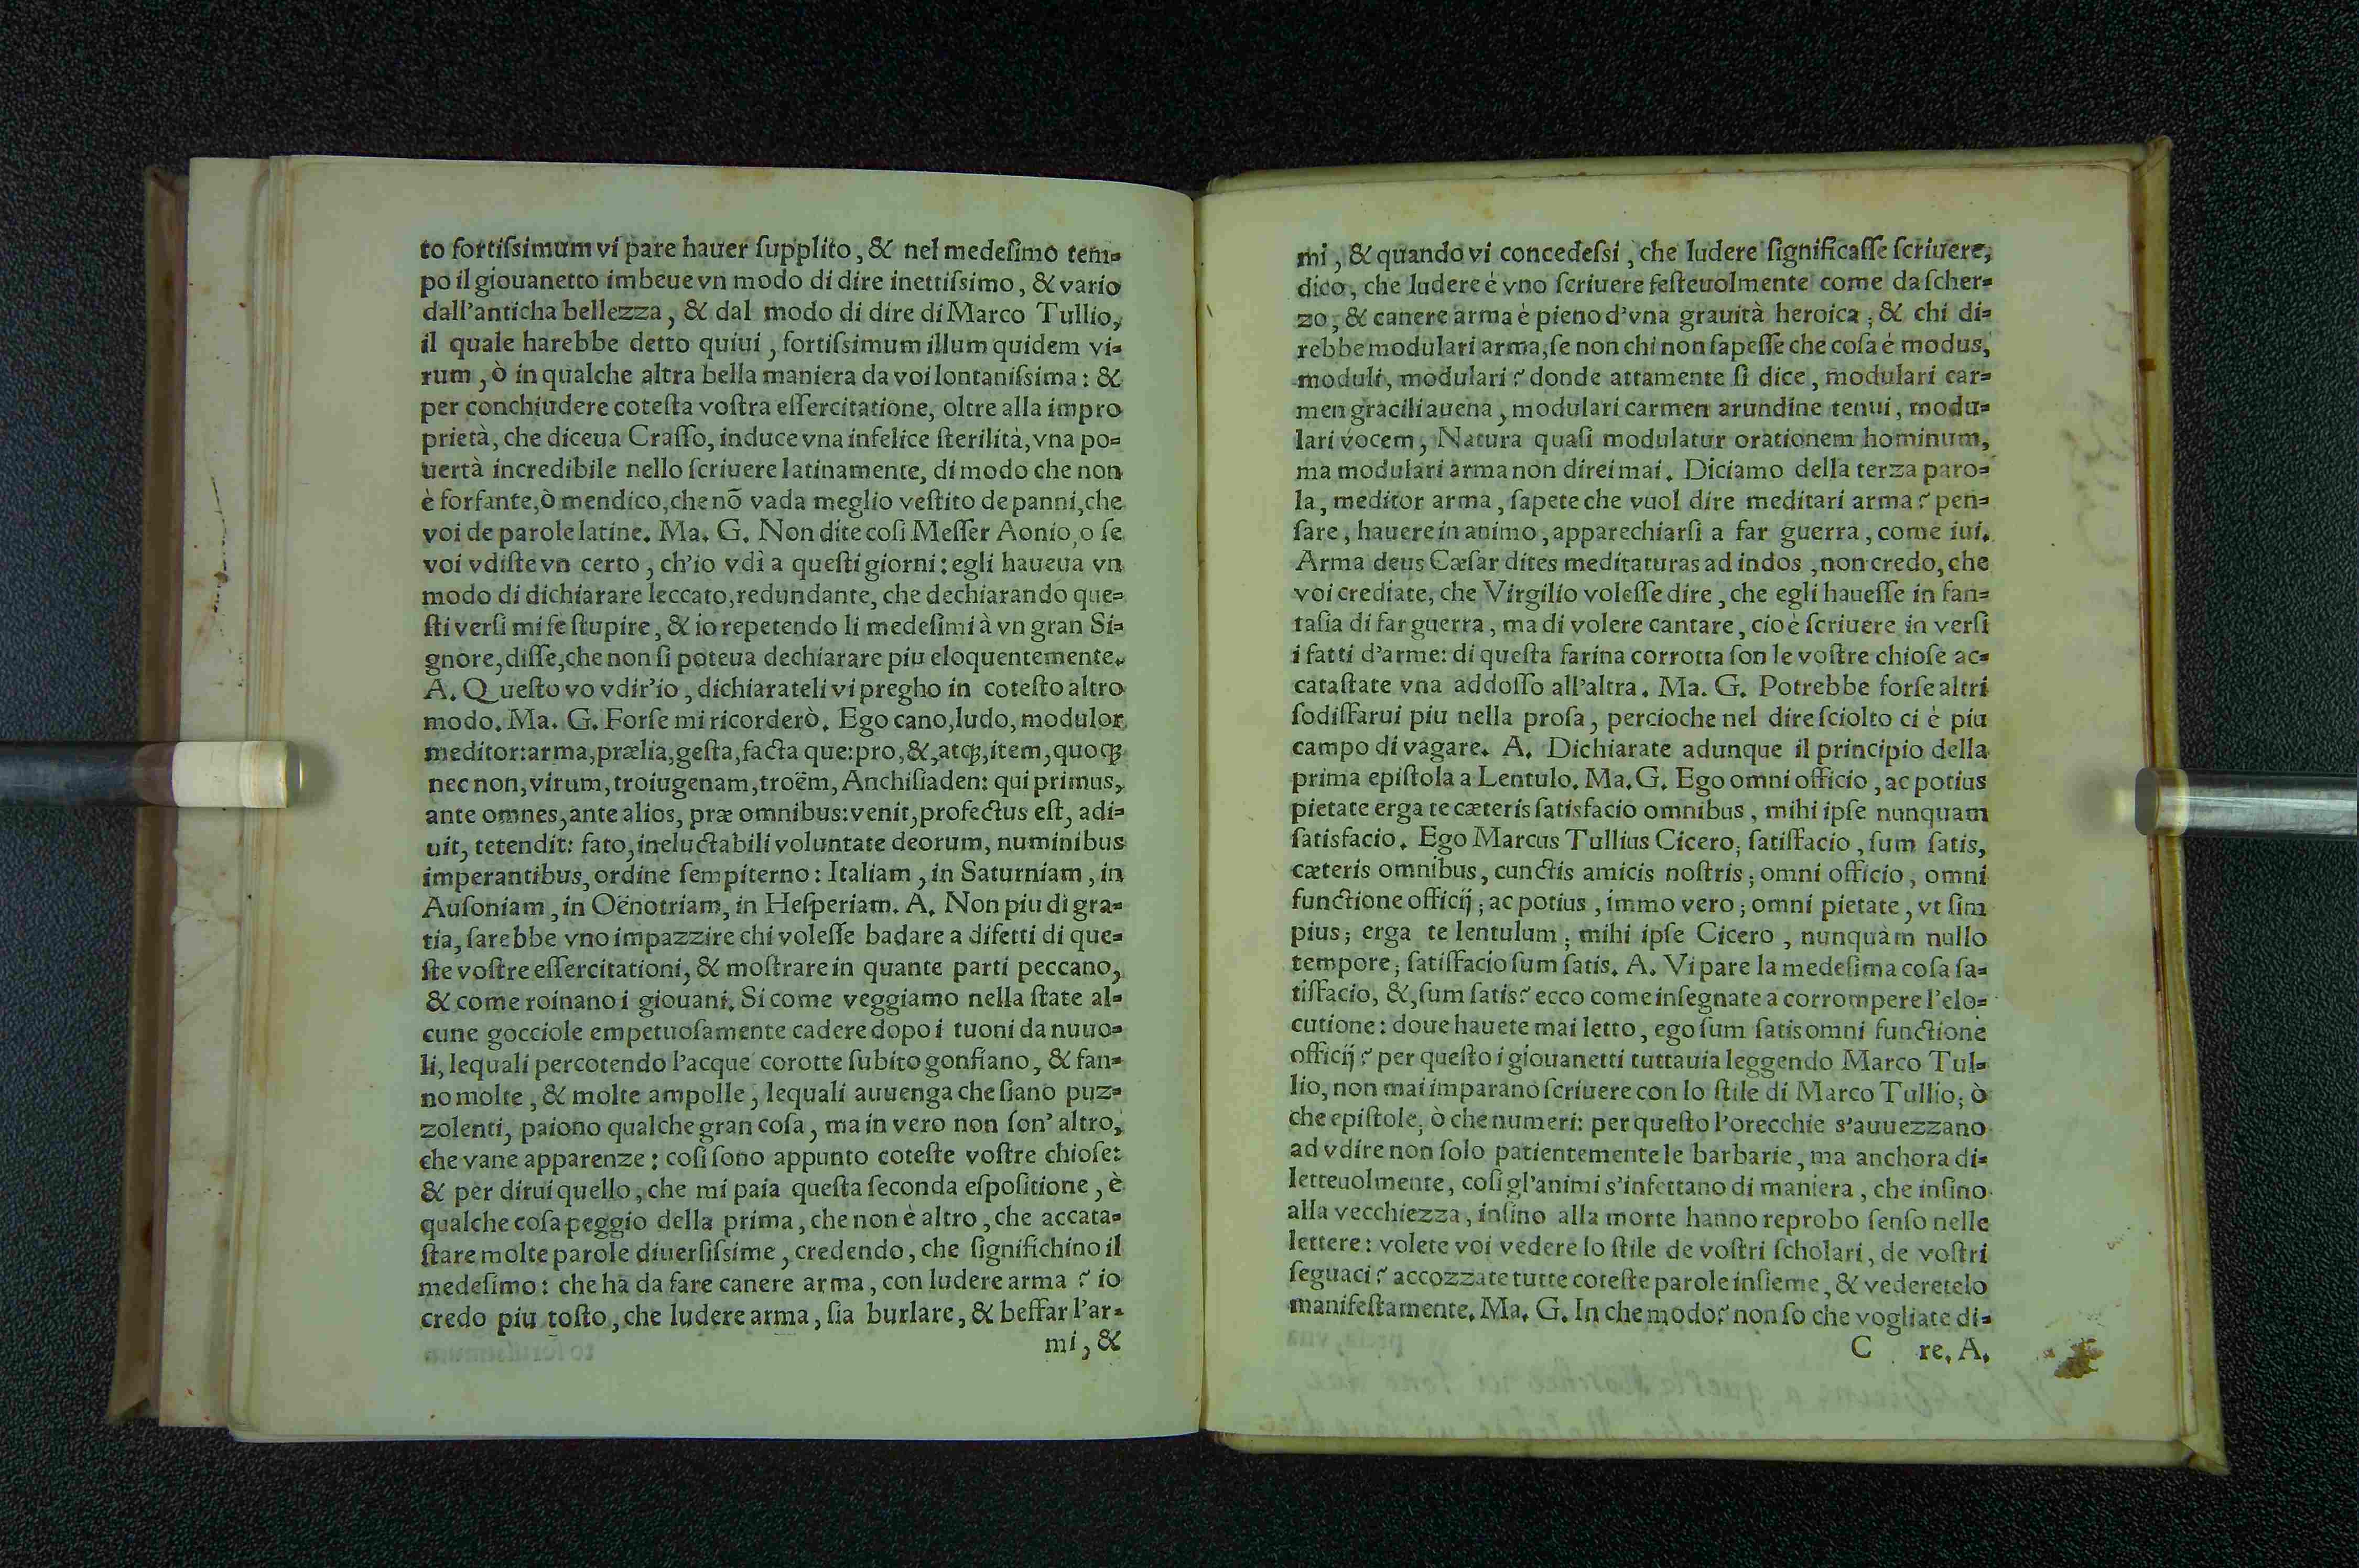 to fortiſsimum vi pare hauer ſupplito, & nel medeſimo tem=
po il giouanetto imbeue vn modo di dire inettiſsimo, & vario
dall'anticha bellezza, & dal modo di dire di Marco Tullio,
il quale harebbe detto quiui, fortiſsimum illum quidem vi=
rum, ò in qualche altra bella maniera da voi lontaniſsima: &
per conchiudere coteſta voſtra eſſercitatione, oltre alla impro
prietà, che diceua Craſſo, induce vna infelice ſterilità, vna po=
uertà incredibile nello ſcriuere latinamente, di modo che non
è forfante, ò mendico, che nō vada meglio veſtito de panni, che
voi de parole latine. Ma. G. Non dite coſi Meſſer Aonio, o ſe
voi vdiſte vn certo, ch'io vdì a queſti giorni: egli haueua vn
modo di dichiarare leccato, redundante, che dechiarando que=
ſti verſi mi fe ſtupire, & io repetendo li medeſimi à vn gran Si=
gnore, diſſe, che non ſi poteua dechiarare piu eloquentemente.
A. Queſto vo vdir'io, dichiarateli vi pregho in coteſto altro
modo. Ma. G. Forſe mi ricorderò. Ego cano, ludo, modulor
meditor: arma, prælia, geſta, facta que: pro, &, atq;, item, quoq;
nec non, virum, troiugenam, troëm, Anchiſiaden: qui primus,
ante omnes, ante alios, præ omnibus: venit, profectus eſt, adi=
uit, tetendit: fato, ineluctabili voluntate deorum, numinibus
imperantibus, ordine ſempiterno: Italiam, in Saturniam, in
Auſoniam, in Oënotriam, in Heſperiam. A. Non piu di gra=
tia, ſarebbe vno impazzire chi voleſſe badare a difetti di que=
ſte voſtre eſſercitationi, & moſtrare in quante parti peccano,
& come roinano i giouani. Si come veggiamo nella ſtate al=
cune gocciole empetuoſamente cadere dopo i tuoni da nuuo=
li, lequali percotendo l'acque corotte ſubito gonfiano, & fan=
no molte, & molte ampolle, lequali auuenga che ſiano puz=
zolenti, paiono qualche gran coſa, ma in vero non ſon' altro,
che vane apparenze: coſi ſono appunto coteſte voſtre chioſe:
& per dirui quello, che mi paia queſta ſeconda eſpoſitione, è
qualche coſa peggio della prima, che non è altro, che accata=
ſtare molte parole diuerſiſsime, credendo, che ſignifichino il
medeſimo: che ha da fare canere arma, con ludere arma? io
credo piu toſto, che ludere arma, ſia burlare, & beffar l'ar=
mi, &
mi, & quando vi concedeſsi, che ludere ſignificaſſe ſcriuere,
dico, che ludere è vno ſcriuere feſteuolmente come da ſcher=
zo, & canere arma è pieno d'vna grauità heroica; & chi di=
rebbe modulari arma, ſe non chi non ſapeſſe che coſa è modus,
moduli, modulari? donde attamente ſi dice, modulari car=
men gracili auena, modulari carmen arundine tenui, modu=
lari vocem, Natura quaſi modulatur orationem hominum,
ma modulari arma non direi mai. Diciamo della terza paro=
la, meditor arma, ſapete che vuol dire meditari arma? pen=
ſare, hauere in animo, apparechiarſi a far guerra, come iui.
Arma deus Cæſar dites meditaturas ad indos, non credo, che
voi crediate, che Virgilio voleſſe dire, che egli haueſſe in fan=
taſia di far guerra, ma di volere cantare, cioè ſcriuere in verſi
i fatti d'arme: di queſta farina corrotta ſon le voſtre chioſe ac=
cataſtate vna addoſſo all'altra. Ma. G. Potrebbe forſe altri
ſodiſfarui piu nella proſa, percioche nel dire ſciolto ci è piu
campo di vagare. A. Dichiarate adunque il principio della
prima epiſtola a Lentulo. Ma. G. Ego omni officio, ac potius
pietate erga te cæteris ſatisfacio omnibus, mihi ipſe nunquam
ſatisfacio. Ego Marcus Tullius Cicero; ſatiſfacio, ſum ſatis,
cæteris omnibus, cunctis amicis noſtris; omni officio, omni
functione officij; ac potius, immo vero; omni pietate, vt ſim
pius; erga te lentulum; mihi ipſe Cicero, nunquàm nullo
tempore; ſatiſfacio ſum ſatis. A. Vi pare la medeſima coſa ſa=
tiſfacio, &, ſum ſatis? ecco come inſegnate a corrompere l'elo=
cutione: doue hauete mai letto, ego ſum ſatis omni functione
officij? per queſto i giouanetti tuttauia leggendo Marco Tul=
lio, non mai imparano ſcriuere con lo ſtile di Marco Tullio; ò
che epiſtole, ò che numeri: per queſto l'orecchie s'auuezzano
ad vdire non ſolo patientemente le barbarie, ma anchora di=
letteuolmente, coſi gl'animi s'infettano di maniera, che inſino
alla vecchiezza, inſino alla morte hanno reprobo ſenſo nelle
lettere: volete voi vedere lo ſtile de voſtri ſcholari, de voſtri
ſeguaci? accozzate tutte coteſte parole inſieme, & vederetelo
manifeſtamente. Ma. G. In che modo? non ſo che vogliate di=
C re. A.